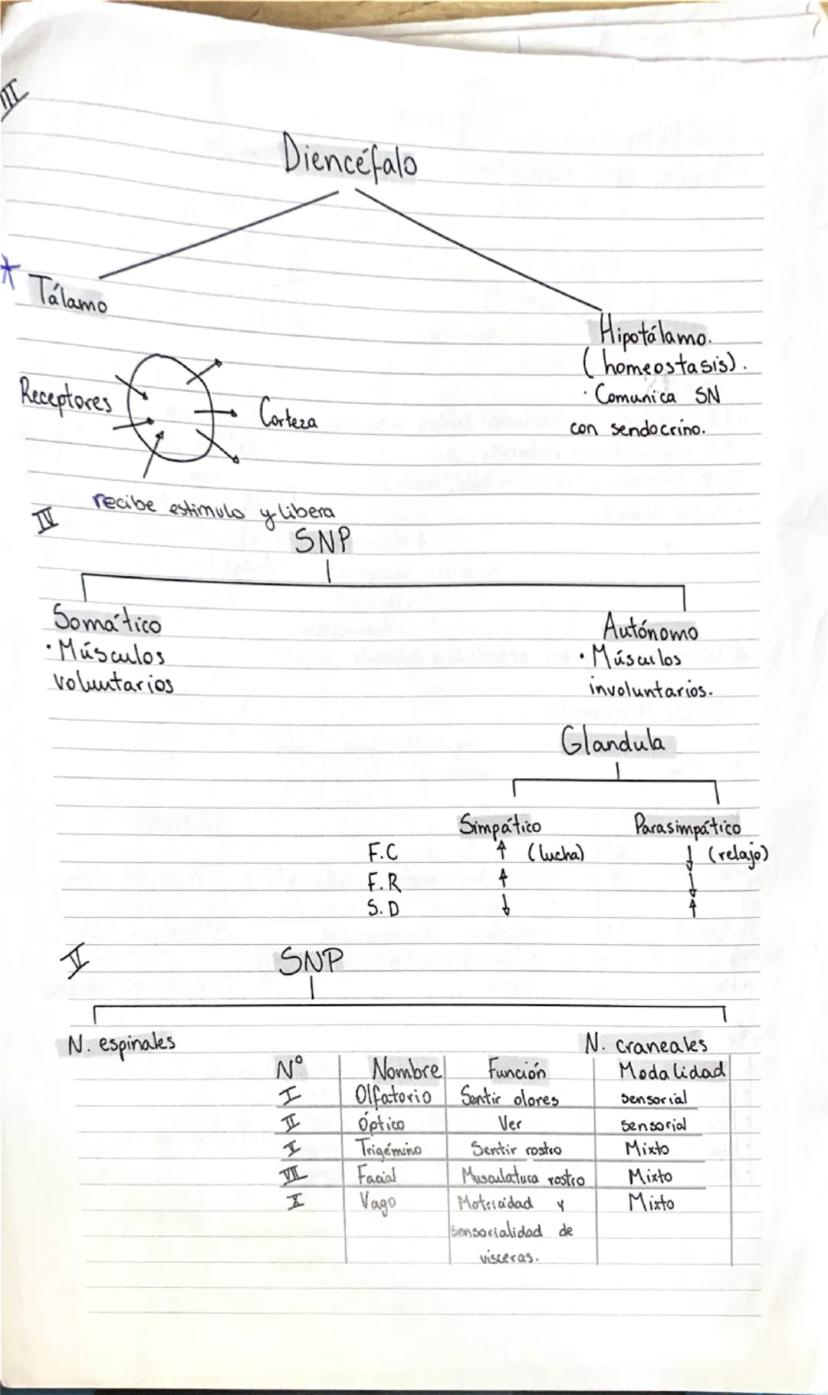 III
Diencéfalo
Tálamo
Hipotálamo.
(homeostasis).
· Comunica SN
con sendocrino.
Receptores
Corteza
recibe estimulo y libera
IV
SNP
Somático
· Músculos
voluntarios
Autónomo
· Músculos
involuntarios.
Glandula
Simpático Parasimpático
F.C ↑ (lucha) ↓ (relajo)
F.R ↑ ↓
S.D ↓ ↑
V
SNP
N. espinales
N. craneales
N° Nombre Función Modalidad
I Olfatorio Sentir olores sensorial
II óptico Ver sensorial
V Trigémino Sentir rostro Mixto
VII Facial Musculatura rostro Mixto
X Vago Motricidad y Mixto
sensorialidad de
visceras.